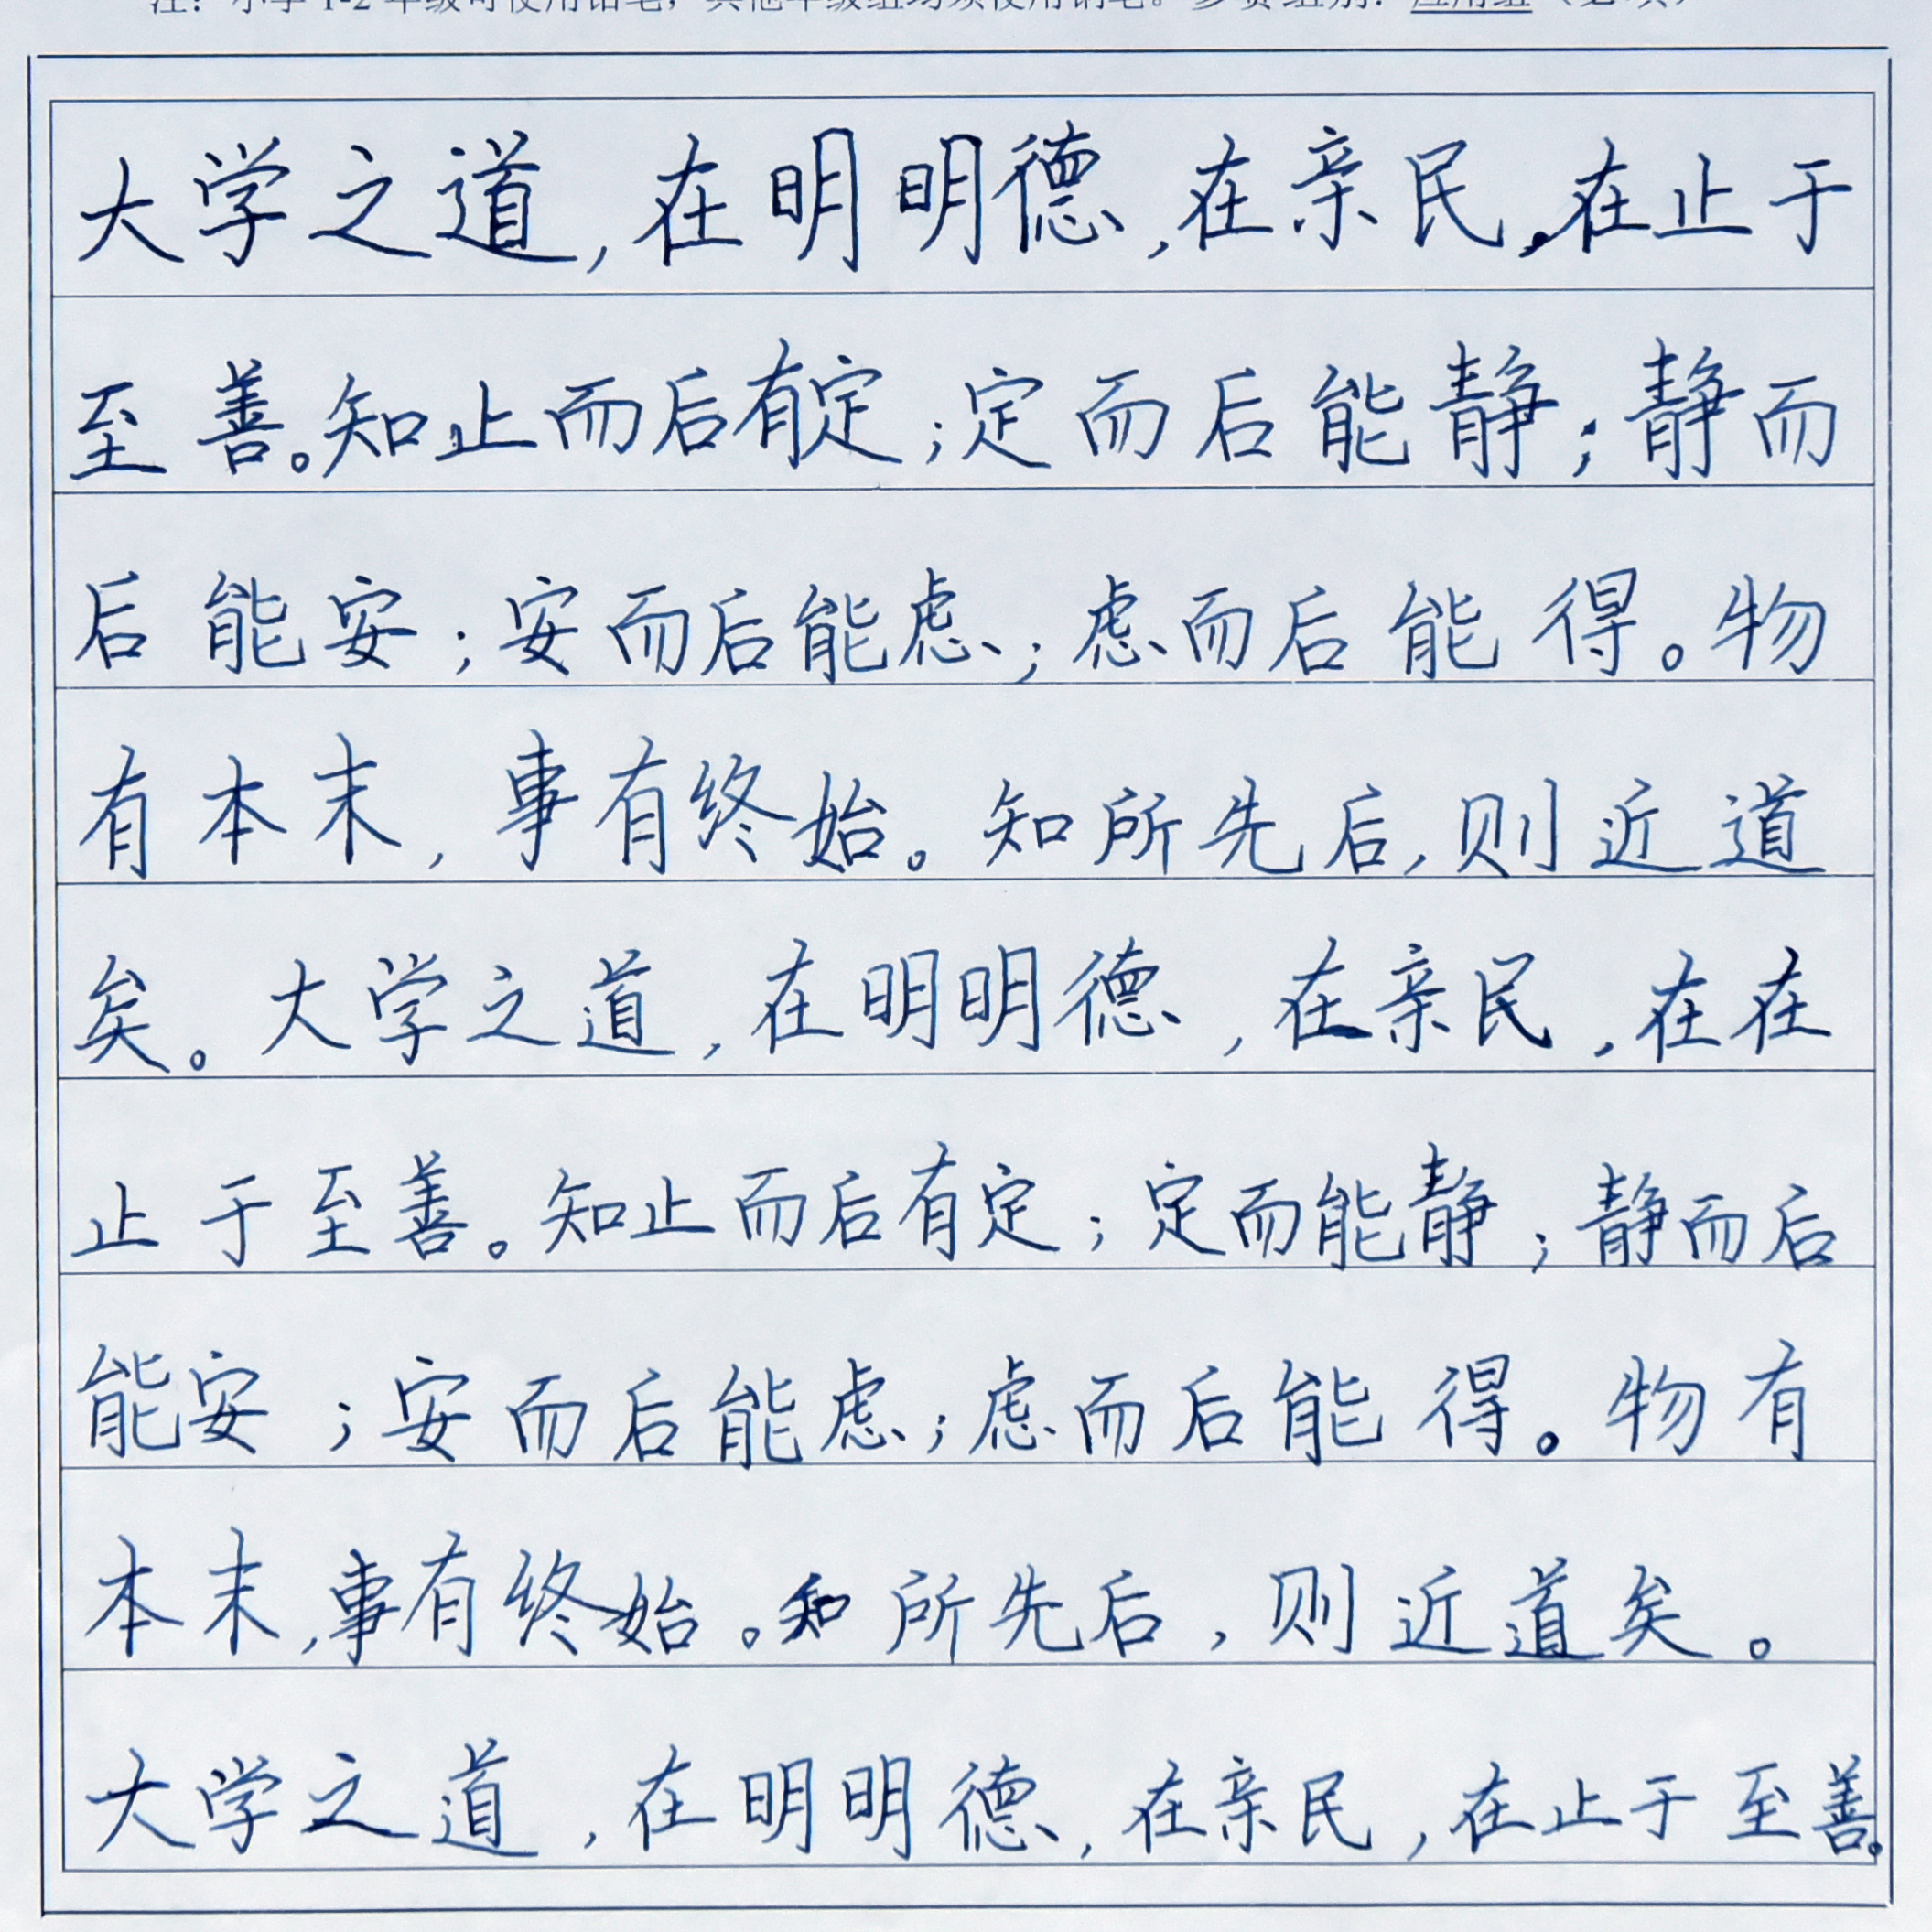 注：小学 1-2 年级可使用铅笔，其他年级组均须使用钢笔。参赛组别：应用组（必填）
大学之道，在明明德，在亲民，在止于
至善。知止而后有定；定而后能静；静而
后能安；安而后能虑；虑而后能得。物
有本末，事有终始。知所先后，则近道
矣。大学之道，在明明德，在亲民，在在
止于至善。知止而后有定；定而能静；静而后
能安；安而后能虑；虑而后能得。物有
本末，事有终始。知所先后，则近道矣。
大学之道，在明明德，在亲民，在止于至善。